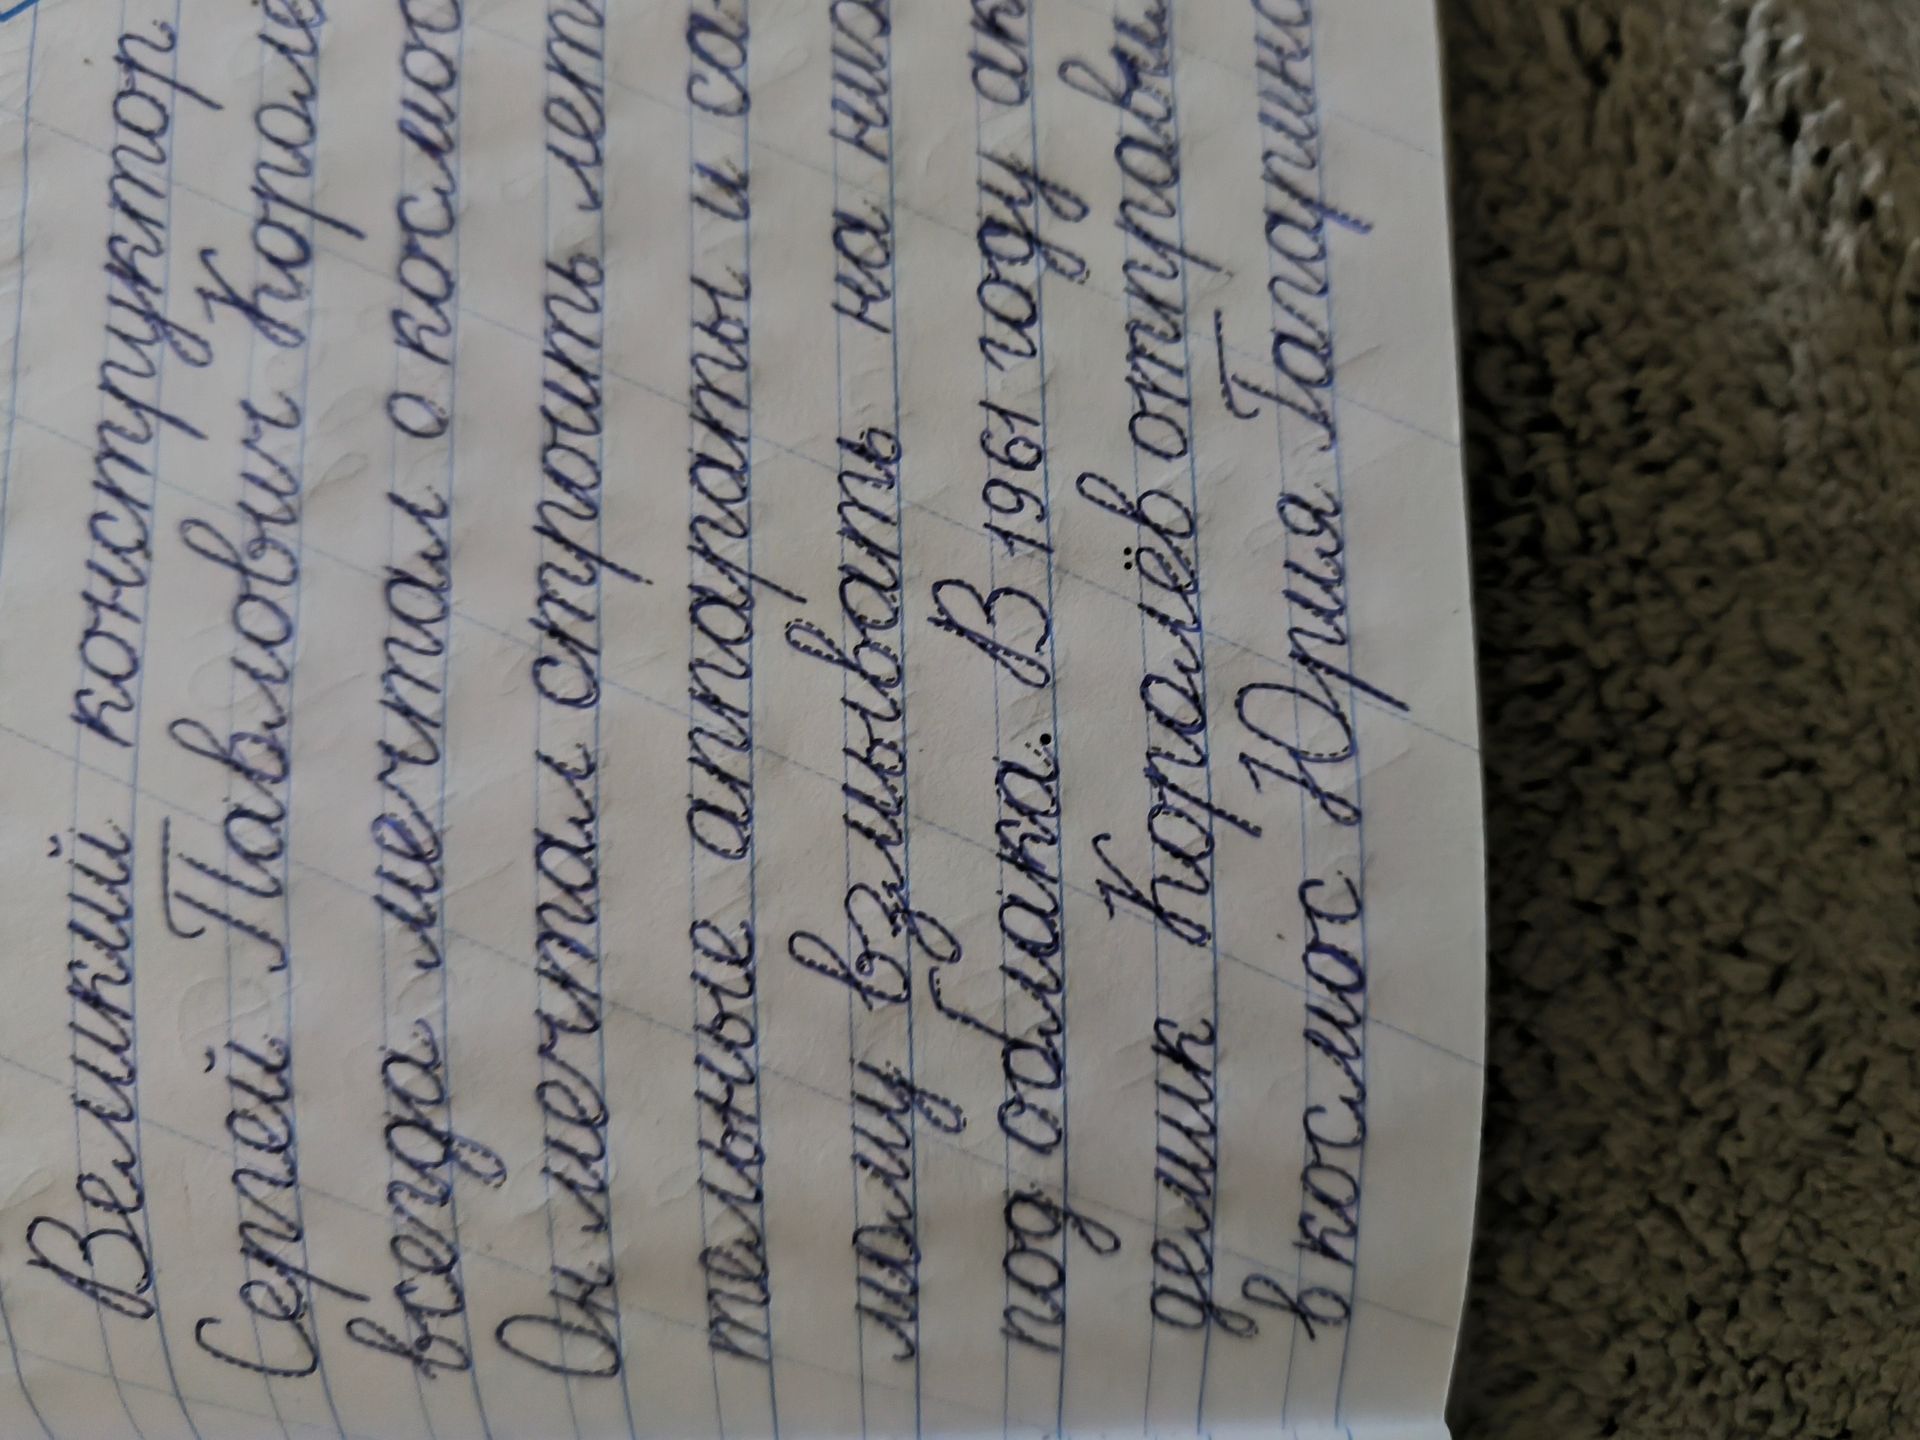 Великий конструктор
Сергей Павлович Короле
всегда мечтал о космос
Он мечтал строить лет
тельные аппараты и са
мому взмывать на них
под облака. В 1961 году ак
демик Королёв отправи
в космос Юрия Гагарина